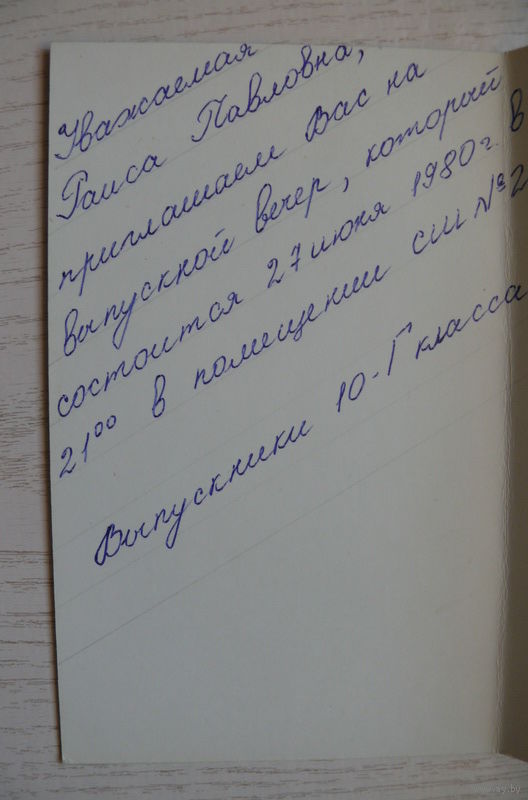 Уважаемая
Раиса Павловна,
приглашаем Вас на
выпускной вечер, который
состоится 27 июня 1980г. в
21⁰⁰ в помещении СШ №2
Выпускники 10-Г класса